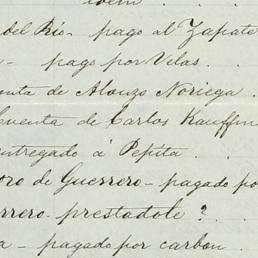 idem
del Río - pago al Zapate
- pago por Velas.
enta de Alonzo Noriega.
Cuenta de Carlos Kauffm
entregado á Pepita . . .
oro de Guerrero - pagado po
rrero - prestadole ? . .
a - pagado por carbon .